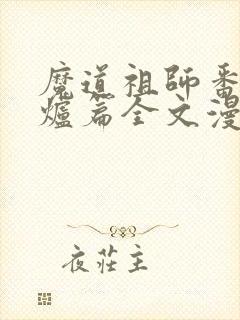 魔道祖師番
爐篇全文漫
夜莊主